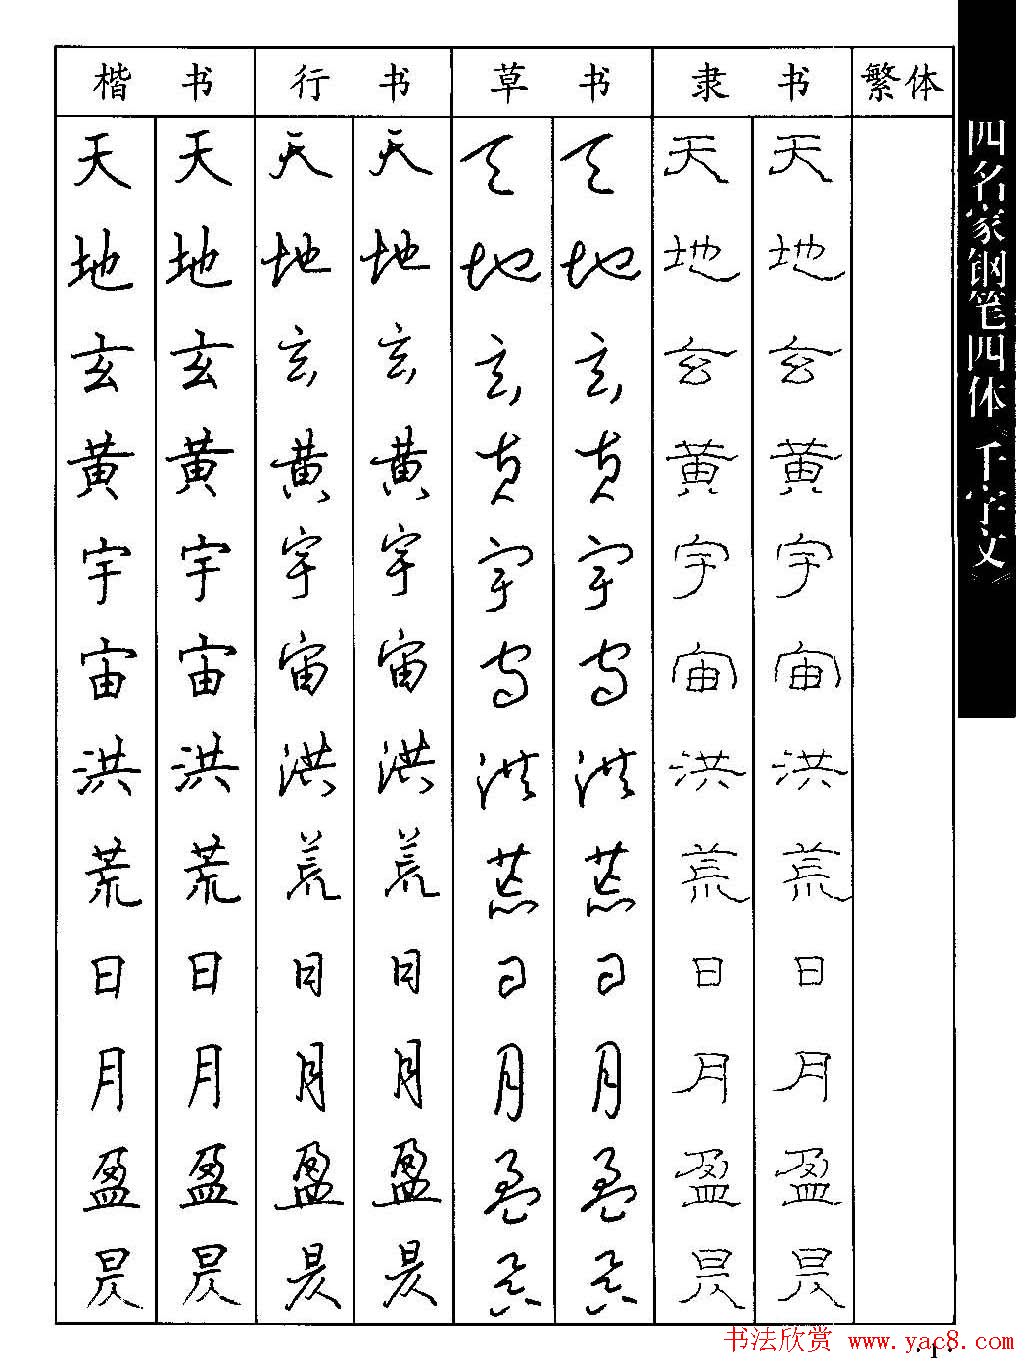 楷 书 行 书 草 书 隶 书 繁体
天 天 天 天 天 天 天 天
地 地 地 地 地 地 地 地
玄 玄 玄 玄 玄 玄 玄 玄
黄 黄 黄 黄 黄 黄 黄 黄
宇 宇 宇 宇 宇 宇 宇 宇
宙 宙 宙 宙 宙 宙 宙 宙
洪 洪 洪 洪 洪 洪 洪 洪
荒 荒 荒 荒 荒 荒 荒 荒
日 日 日 日 日 日 日 日
月 月 月 月 月 月 月 月
盈 盈 盈 盈 盈 盈 盈 盈
昃 昃 昃 昃 昃 昃 昃 昃
四名家钢笔四体《千字文》
书法欣赏 www.yac8.com
·1·